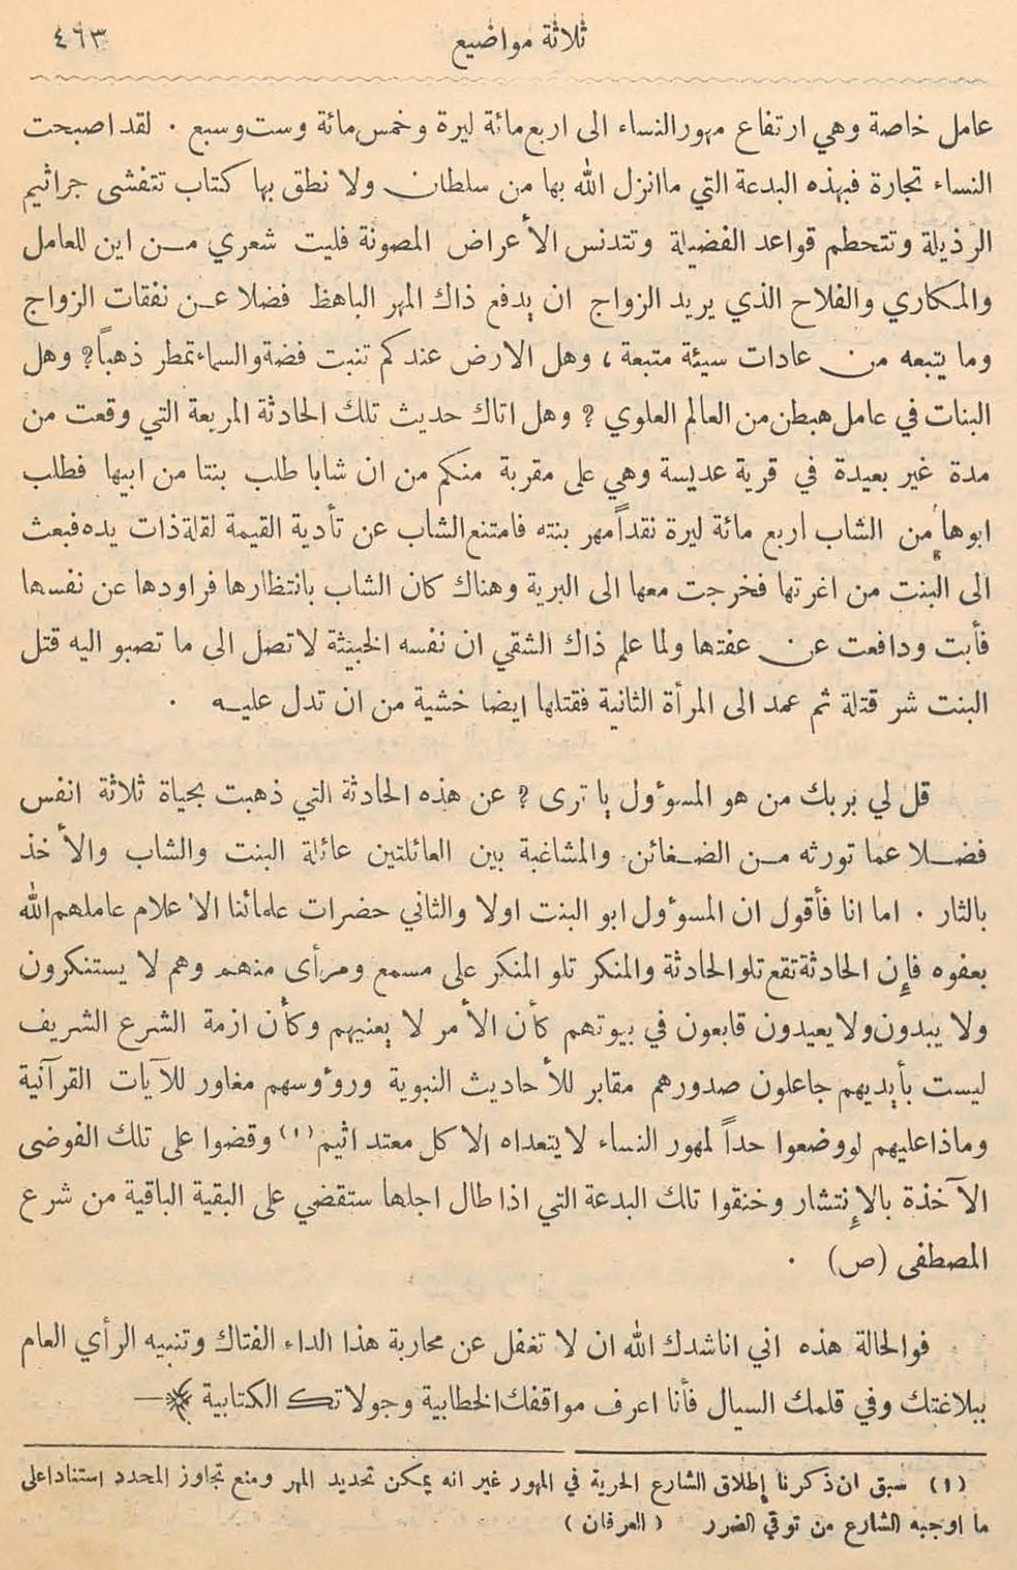 ثلاثة مواضيع
٤٦٣
عامل خاصة وهي ارتفاع مهور النساء الى اربع مائة ليرة وخمس مائة وست وسبع . لقد اصبحت
النساء تجارة فبهذه البدعة التي ما انزل الله بها من سلطان ولا نطق بها كتاب تتفشى جراثيم
الرذيلة وتتحطم قواعد الفضيلة وتتدنس الأعراض المصونة فليت شعري من اين للعامل
والمكاري والفلاح الذي يريد الزواج ان يدفع ذاك المهر الباهظ فضلا عن نفقات الزواج
وما يتبعه من عادات سيئة متبعة ، وهل الارض عندكم تنبت فضة والسماء تمطر ذهباً ؟ وهل
البنات في عامل هبطن من العالم العلوي ؟ وهل اتاك حديث تلك الحادثة المريعة التي وقعت من
مدة غير بعيدة في قرية عديسة وهي على مقربة منكم من ان شابا طلب بنتا من ابيها فطلب
ابوها من الشاب اربع مائة ليرة نقداً مهر بنته فامتنع الشاب عن تأدية القيمة لقلة ذات يده فبعث
الى البنت من اغرتها فخرجت معها الى البرية وهناك كان الشاب بانتظارها فراودها عن نفسها
فأبت ودافعت عن عفتها ولما علم ذاك الشقي ان نفسه الخبيثة لا تصل الى ما تصبو اليه قتل
البنت شر قتلة ثم عمد الى المرأة الثانية فقتلها ايضا خشية من ان تدل عليه .
قل لي بربك من هو المسوؤل يا ترى ؟ عن هذه الحادثة التي ذهبت بحياة ثلاثة انفس
فضلا عما تورثه من الضغائن والمشاغبة بين العائلتين عائلة البنت والشاب والأخذ
بالثار . اما انا فأقول ان المسوؤل ابو البنت اولا والثاني حضرات علمائنا الأعلام عاملهم الله
بعفوه فإن الحادثة تقع تلو الحادثة والمنكر تلو المنكر على مسمع ومرأى منهم وهم لا يستنكرون
ولا يبدون ولا يعيدون قابعون في بيوتهم كأن الأمر لا يعنيهم وكأن ازمة الشرع الشريف
ليست بأيديهم جاعلون صدورهم مقابر للأحاديث النبوية وروؤسهم مغاور للآيات القرآنية
وماذا عليهم لو وضعوا حداً لمهور النساء لا يتعداه الا كل معتد اثيم (١) وقضوا على تلك الفوضى
الآخذة بالإنتشار وخنقوا تلك البدعة التي اذا طال اجلها ستقضي على البقية الباقية من شرع
المصطفى (ص) .
فوالحالة هذه اني اناشدك الله ان لا تغفل عن محاربة هذا الداء الفتاك وتنبيه الرأي العام
ببلاغتك وفي قلمك السيال فأنا اعرف مواقفك الخطابية وجولاتك الكتابية
(١) سبق ان ذكرنا إطلاق الشارع الحرية في المهور غير انه يمكن تحديد المهر ومنع تجاوز المحدد استنادا على
ما اوجبه الشارع من توقي الضرر ( العرفان )